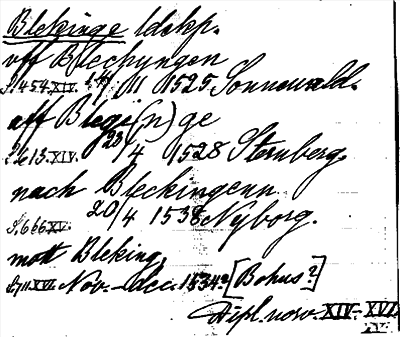 Blekinge ldskp.
uff Blechungen
S. 454 XIV. 11 1525 Sonnewald.
aff Blegi(n)ge
S. 613. XIV. 23/4 1528 Sternberg.
nach Bleckingenn
S. 666 XV. 20/4 1538 Nyborg.
mott Bleking,
XVI. Nov.-dec. 1534? [Bohus?]
Dipl. norv. XIV-XVI.
XV.